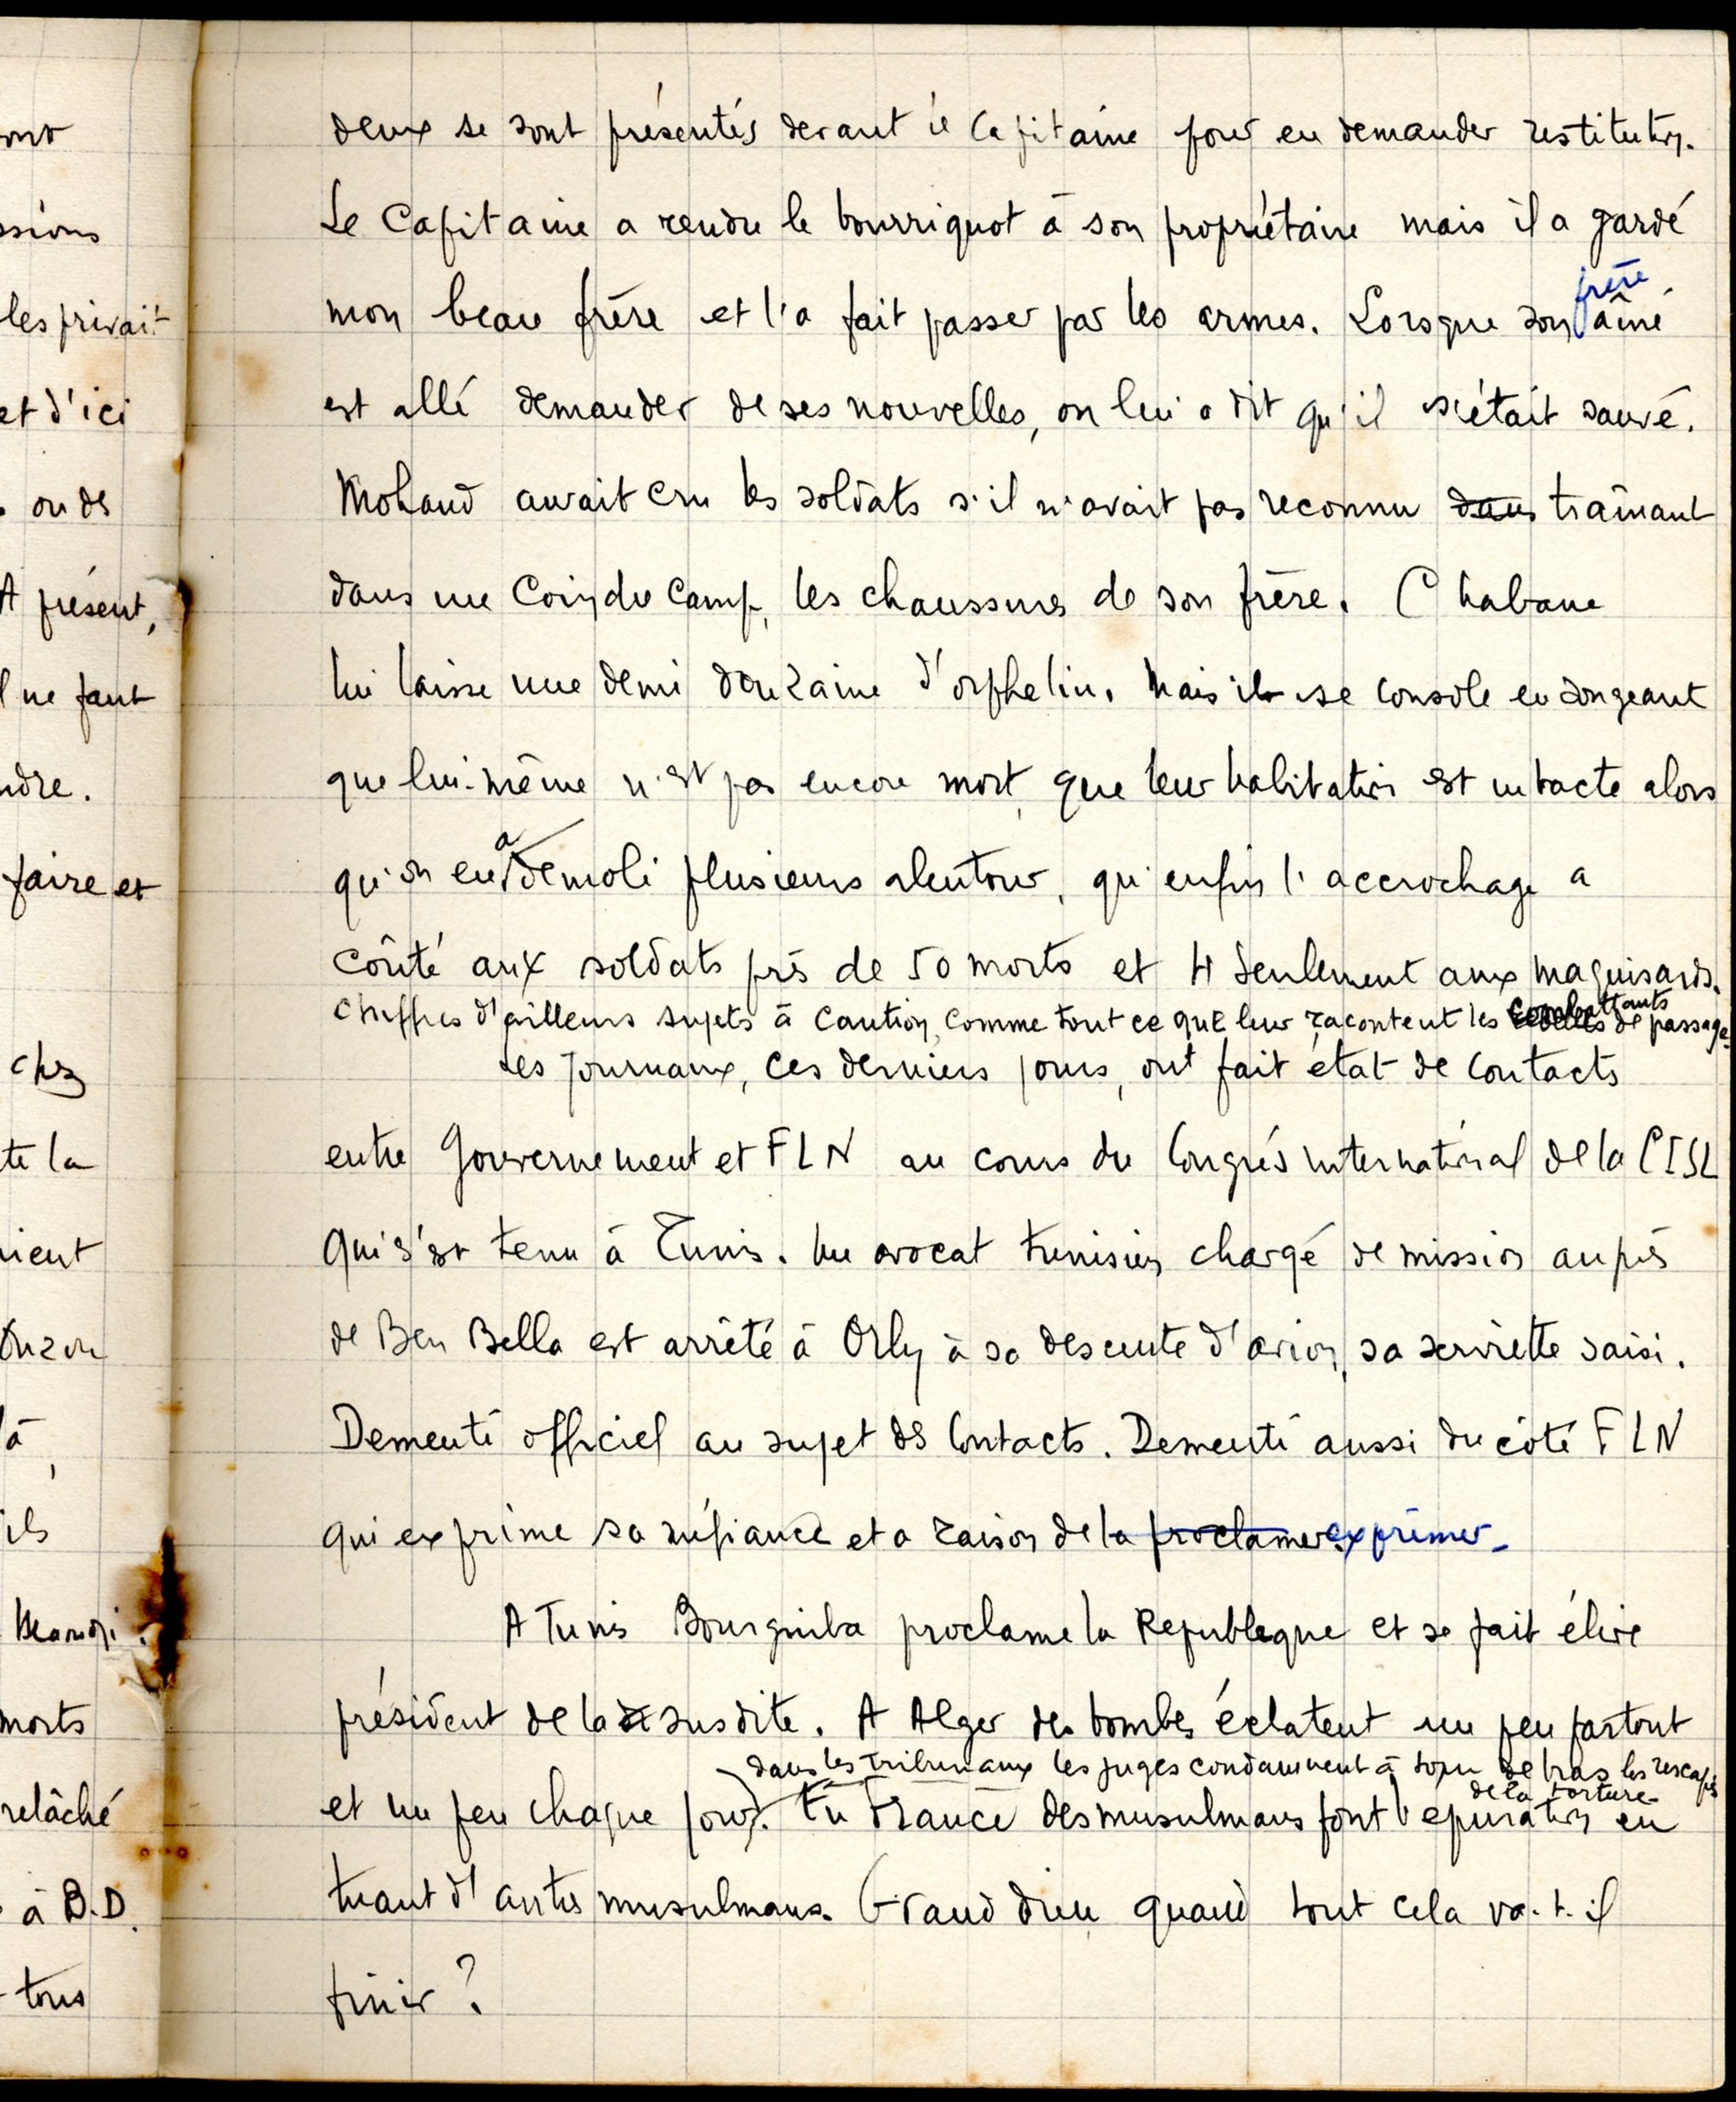 ont
ssions
les privait
et d'ici
ou ds
A présent,
l ne faut
ndre.
faire et
chz
te la
ient
ouzou
à,
ils
morts
relâché
à B.D.
tous
deux se sont présentés devant le Capitaine pour en demander restitution.
Le Capitaine a rendu le bourriquot à son propriétaire mais il a gardé
mon beau frère et l'a fait passer par les armes. Lorsque son frère aîné
est allé demander de ses nouvelles, on lui a dit qu'il s'était sauvé.
Mohand aurait cru les soldats s'il n'avait pas reconnu dans traînant
dans un coin du camp, les chaussures de son frère. Chabane
lui laisse une demi douzaine d'orphelin. Mais il se console en songeant
que lui-même n'est pas encore mort, que leur habitation est intacte alors
qu'on en a démoli plusieurs alentour, qu'enfin l'accrochage a
coûté aux soldats près de 50 morts et 4 seulement aux maquisards.
Chiffres d'ailleurs sujets à caution, comme tout ce que leur racontent les combattants de passage.
Les journaux, ces derniers jours, ont fait état de contacts
entre Gouvernement et FLN au cours du Congrès international de la CISL
qui s'est tenu à Tunis. Un avocat tunisien chargé de mission auprès
de Ben Bella est arrêté à Orly à sa descente d'avion, sa serviette saisi.
Dementi officiel au sujet ds Contacts. Dementi aussi du côté FLN
qui exprime sa méfiance et a raison de la proclamer. exprimer.
A Tunis Bourguiba proclame la Republique et se fait élire
président de la de susdite. A Alger des bombes éclatent un peu partout
dans les tribunaux les juges condamnent à tour de bras les rescapés
de la torture.
et un peu chaque jour. En France des musulmans font l'epuration en
tuant d'autres musulmans. Grand dieu, quand tout cela va-t-il
finir ?